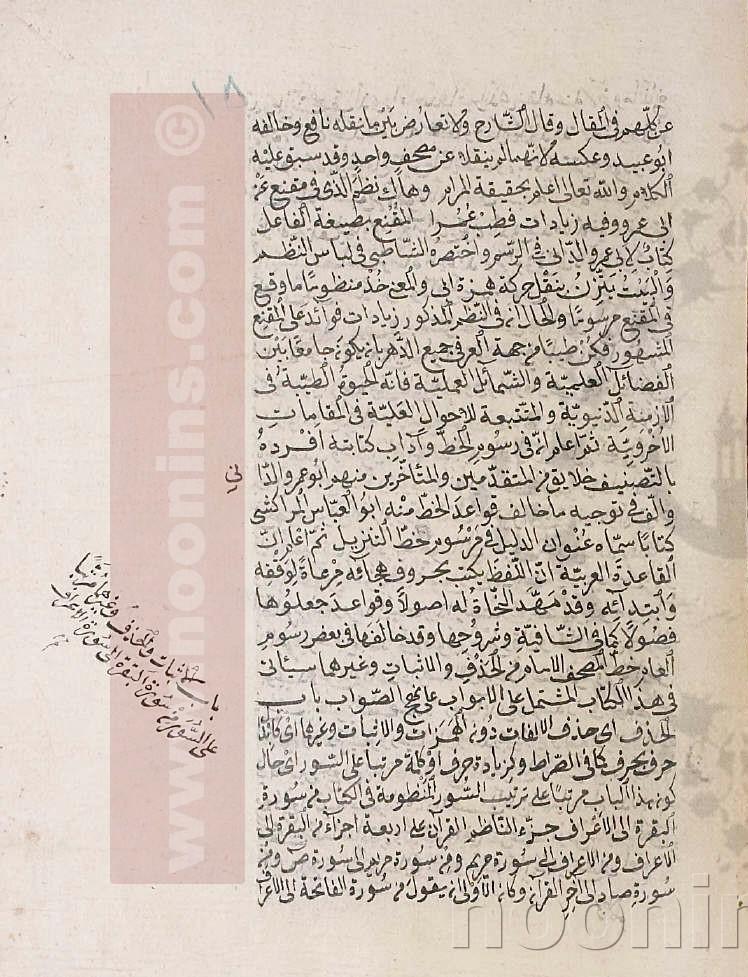 ١٨
عن كلهم في المقال وقال الشارح ولا تعارض بين ما نقله نافع وخالفه
ابو عبيد وعكسه لانهما لم ينقلاه عن مصحف واحد وقد سبق عليه
الكلام والله تعالى اعلم بحقيقة المرام وهاك نظم الذي في مقنع عن
ابي عمرو وفيه زيادات فطب عمرا المقنع بصيغة الفاعل
كتاب لابي عمرو الداني في الرسم واختصره الشاطبي في لباس النظم
والبيت يتزن بنقل حركة همزة ابي والمعنى خذ منظوما ما وقع
في المقنع مرسوما والحال ان في النظم المذكور زيادات فوائد على المقنع
المشهور فكن طيبا من جهة العمر في جميع الدهر بان يكون جامعا بين
الفضائل العلمية والشمائل العملية فانه الحيوة الطيبة في
الازمنة الدنيوية والمتتبعة للاحوال العلية في المقامات
الاخروية ثم اعلم ان في رسوم الخط وآداب كتابته افرده
بالتصنيف خلايق من المتقدمين والمتأخرين منهم ابو عمرو الدا
ني
والف في توجيه ما خالف قواعد الخط منه ابو العباس المراكشي
كتابا سماه عنوان الدليل في مرسوم خط التنزيل ثم اعلم ان
القاعدة العربية ان اللفظ يكتب بحروف هجائه مع مرعاة لوقفه
وابتدائه وقد مهد النحاة له اصولا وقواعد جعلوها
فصولا كما في الشافية وشروحها وقد خالفها في بعض رسوم
العام خط المصحف الامام من الحذف والاثبات وغيرهما سيأتي
في هذا الكتاب المشتمل على الابواب على نهج الصواب باب
الحذف اي حذف الالفات دون الهمزات والاثبات وغيرها اي كابدال
حرف بحرف كما في الصراط وكزيادة حرف او كلمة مرتبا على السور اي حال
كون هذا الباب مرتبا على ترتيب السور المنظومة في الكتاب من سورة
البقرة الى الاعراف جزء الناظم القرآن على اربعة اجزاء من البقرة الى
الاعراف ومن الاعراف الى سورة مريم ومن سورة مريم الى سورة ص ومن
سورة صاد الى آخر القرآن وكان الاولى ان يقول من سورة الفاتحة الى الاعراف
باب الاثبات والحذف وغيرهما مرتبا
على السور من سورة البقرة الى سورة الاعراف
www.noonins.com ©
noonin